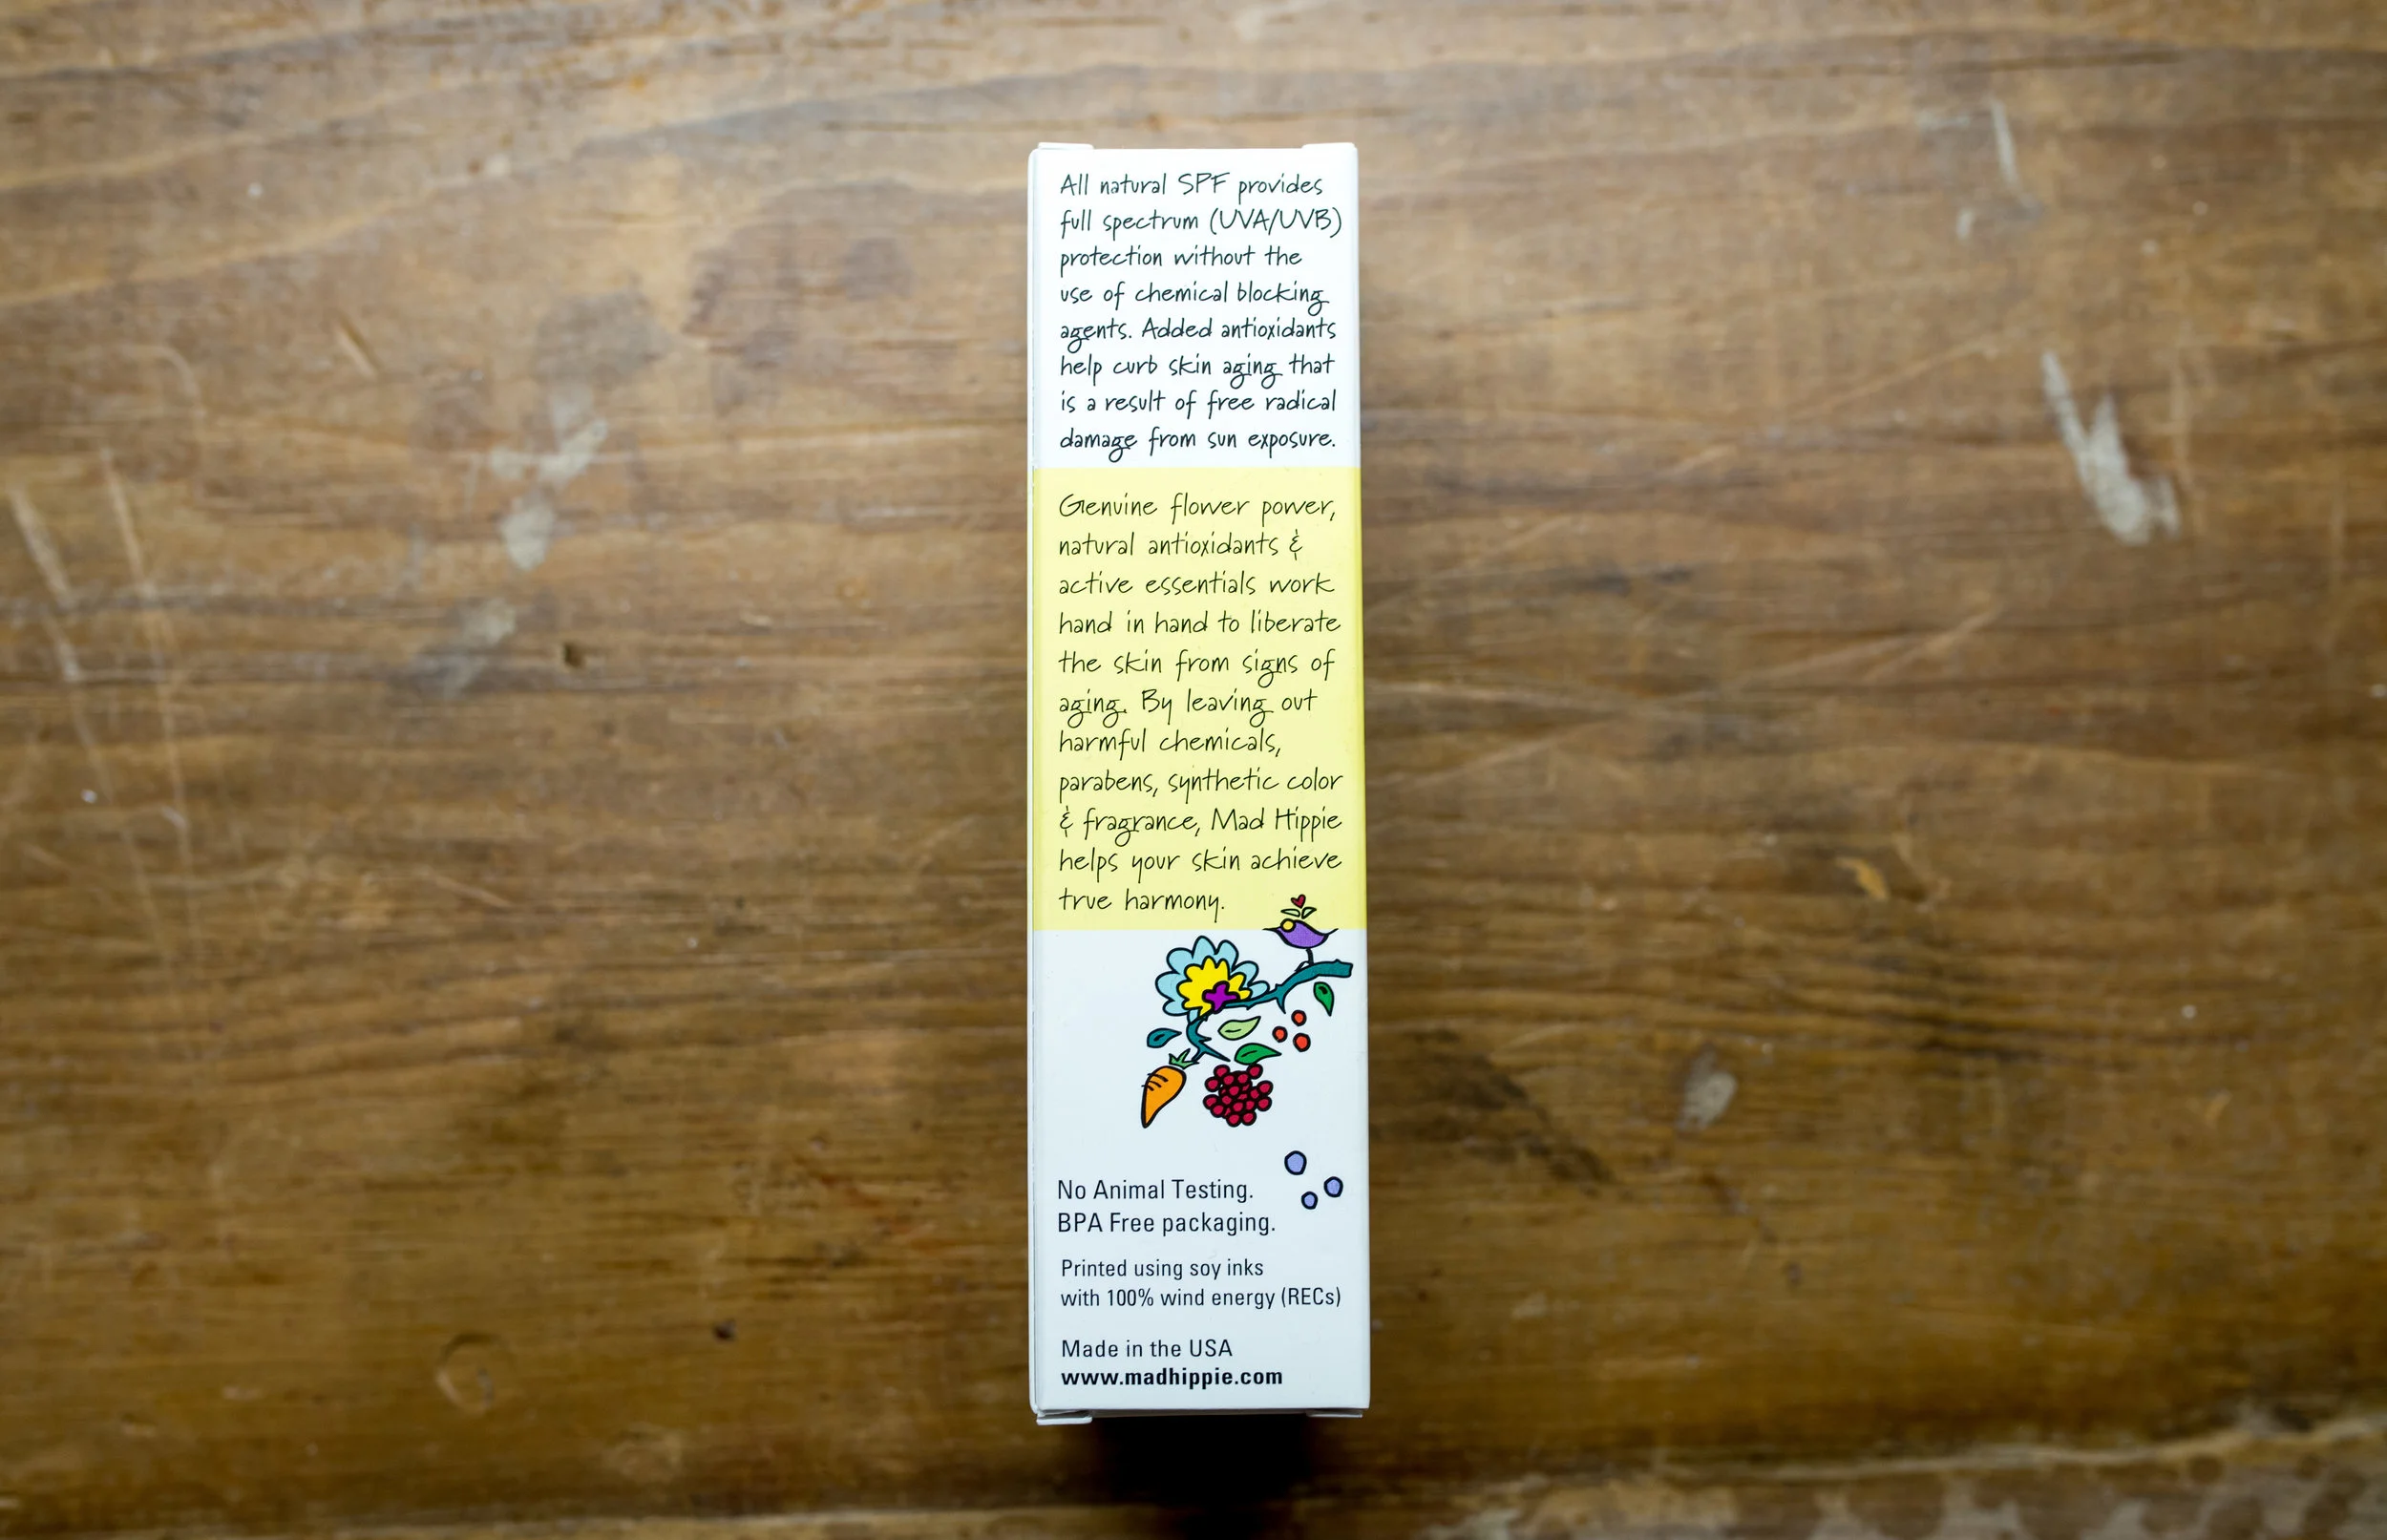 All natural SPF provides
full spectrum (UVA/UVB)
protection without the
use of chemical blocking
agents. Added antioxidants
help curb skin aging that
is a result of free radical
damage from sun exposure.
Genuine flower power,
natural antioxidants &
active essentials work
hand in hand to liberate
the skin from signs of
aging. By leaving out
harmful chemicals,
parabens, synthetic color
& fragrance, Mad Hippie
helps your skin achieve
true harmony.
No Animal Testing.
BPA Free packaging.
Printed using soy inks
with 100% wind energy (RECs)
Made in the USA
www.madhippie.com